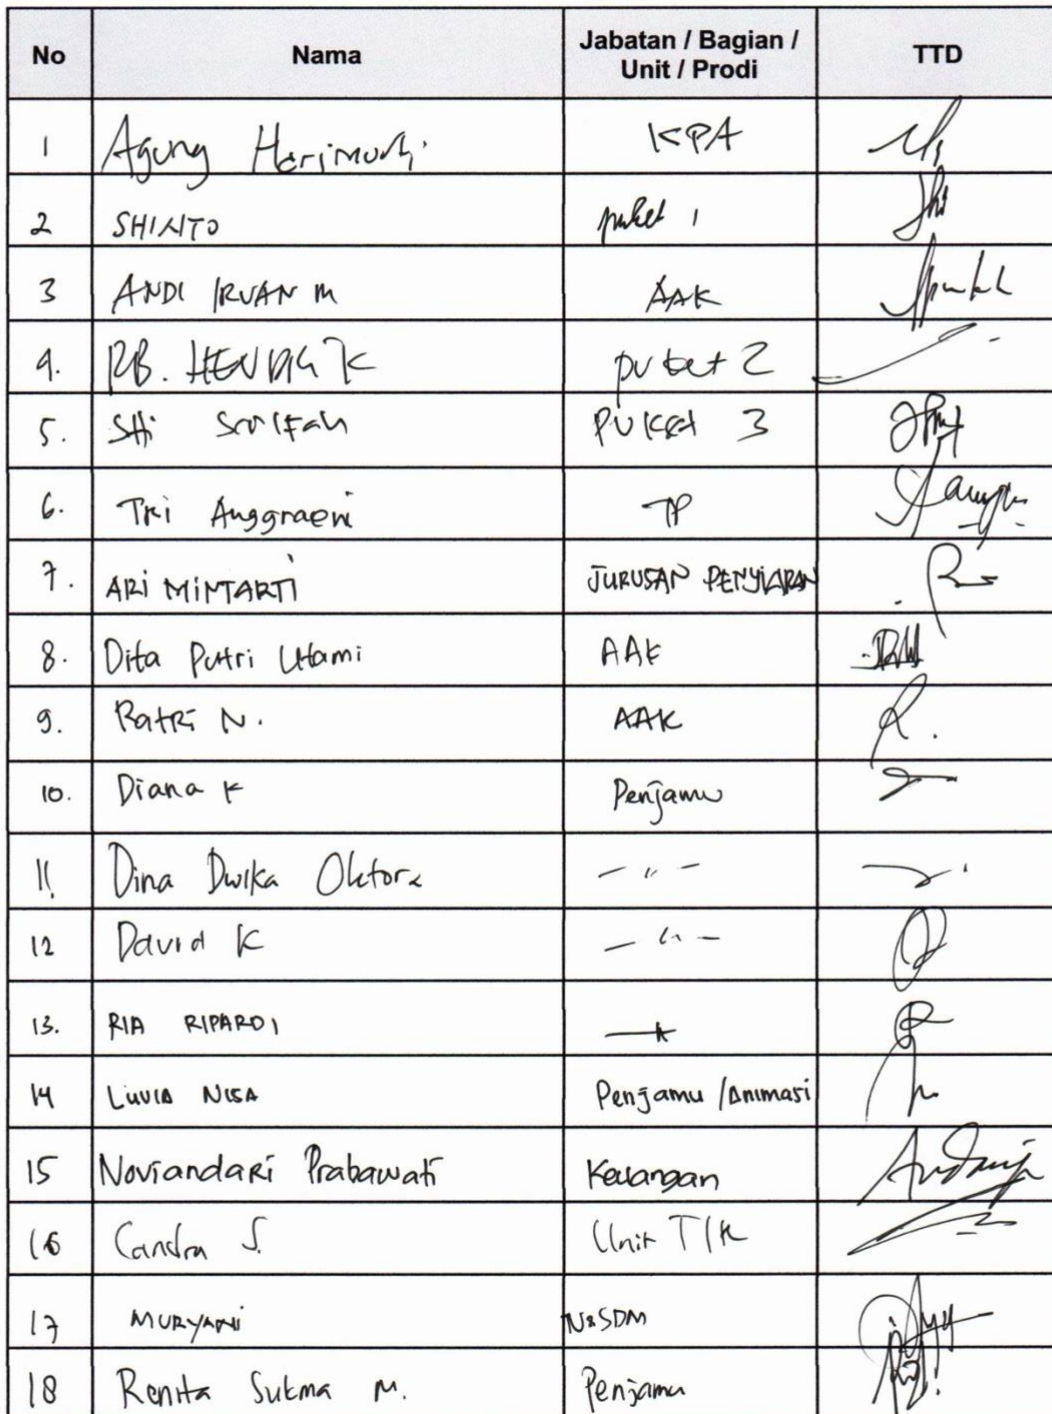 No Nama Jabatan / Bagian / Unit / Prodi TTD
1 Agung Harimurti KPA
2 SHINTO puket 1
3 ANDI IRVAN M AAK
4. RB. HENDRI K puket 2
5. Siti puket 3
6. Tri Anggraeni TP
7. ARI MINTARTI JURUSAN PENYIARAN
8. Dita Putri Utami AAK
9. Ratri N. AAK
10. Diana K Penjamu
11. Dina Dwika Oktora - " -
12 David K - " -
13. RIA RIPARDI
14 LUVIA NISA Penjamu / Animasi
15 Noviandari Prabawati Keuangan
16 Candra S. Unit TIK
17 MURYANI N&SDM
18 Renita Sukma M. Penjamu